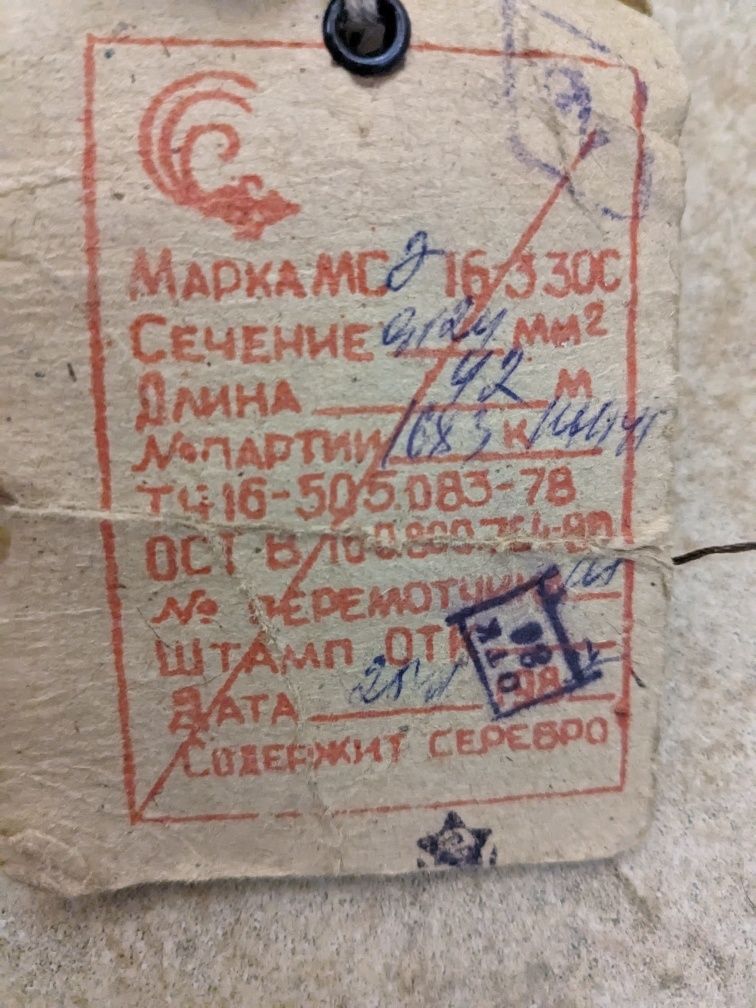 МАРКА МС Э 16-33 0С
СЕЧЕНИЕ 0,124 ММ²
ДЛИНА 92 М
№ ПАРТИИ 1683 К
ТУ 16-505.083-78
ОСТ В 160.800.764-80
№ ПЕРЕМОТЧИКА
ШТАМП ОТК
ДАТА 198
СОДЕРЖИТ СЕРЕБРО
ОТК
80